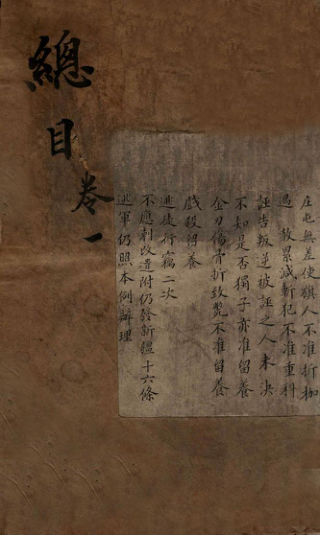 總目
卷一
在屯無差使旗人不准折枷
遇赦累減斬犯不准重科
誣告叛逆被誣之人未決
不知是否獨子亦准留養
金刃傷骨折致斃不准留養
戲殺留養
逃徒行竊二次
不應刺改遣附仍發新疆十六條
逃軍仍照本例辦理